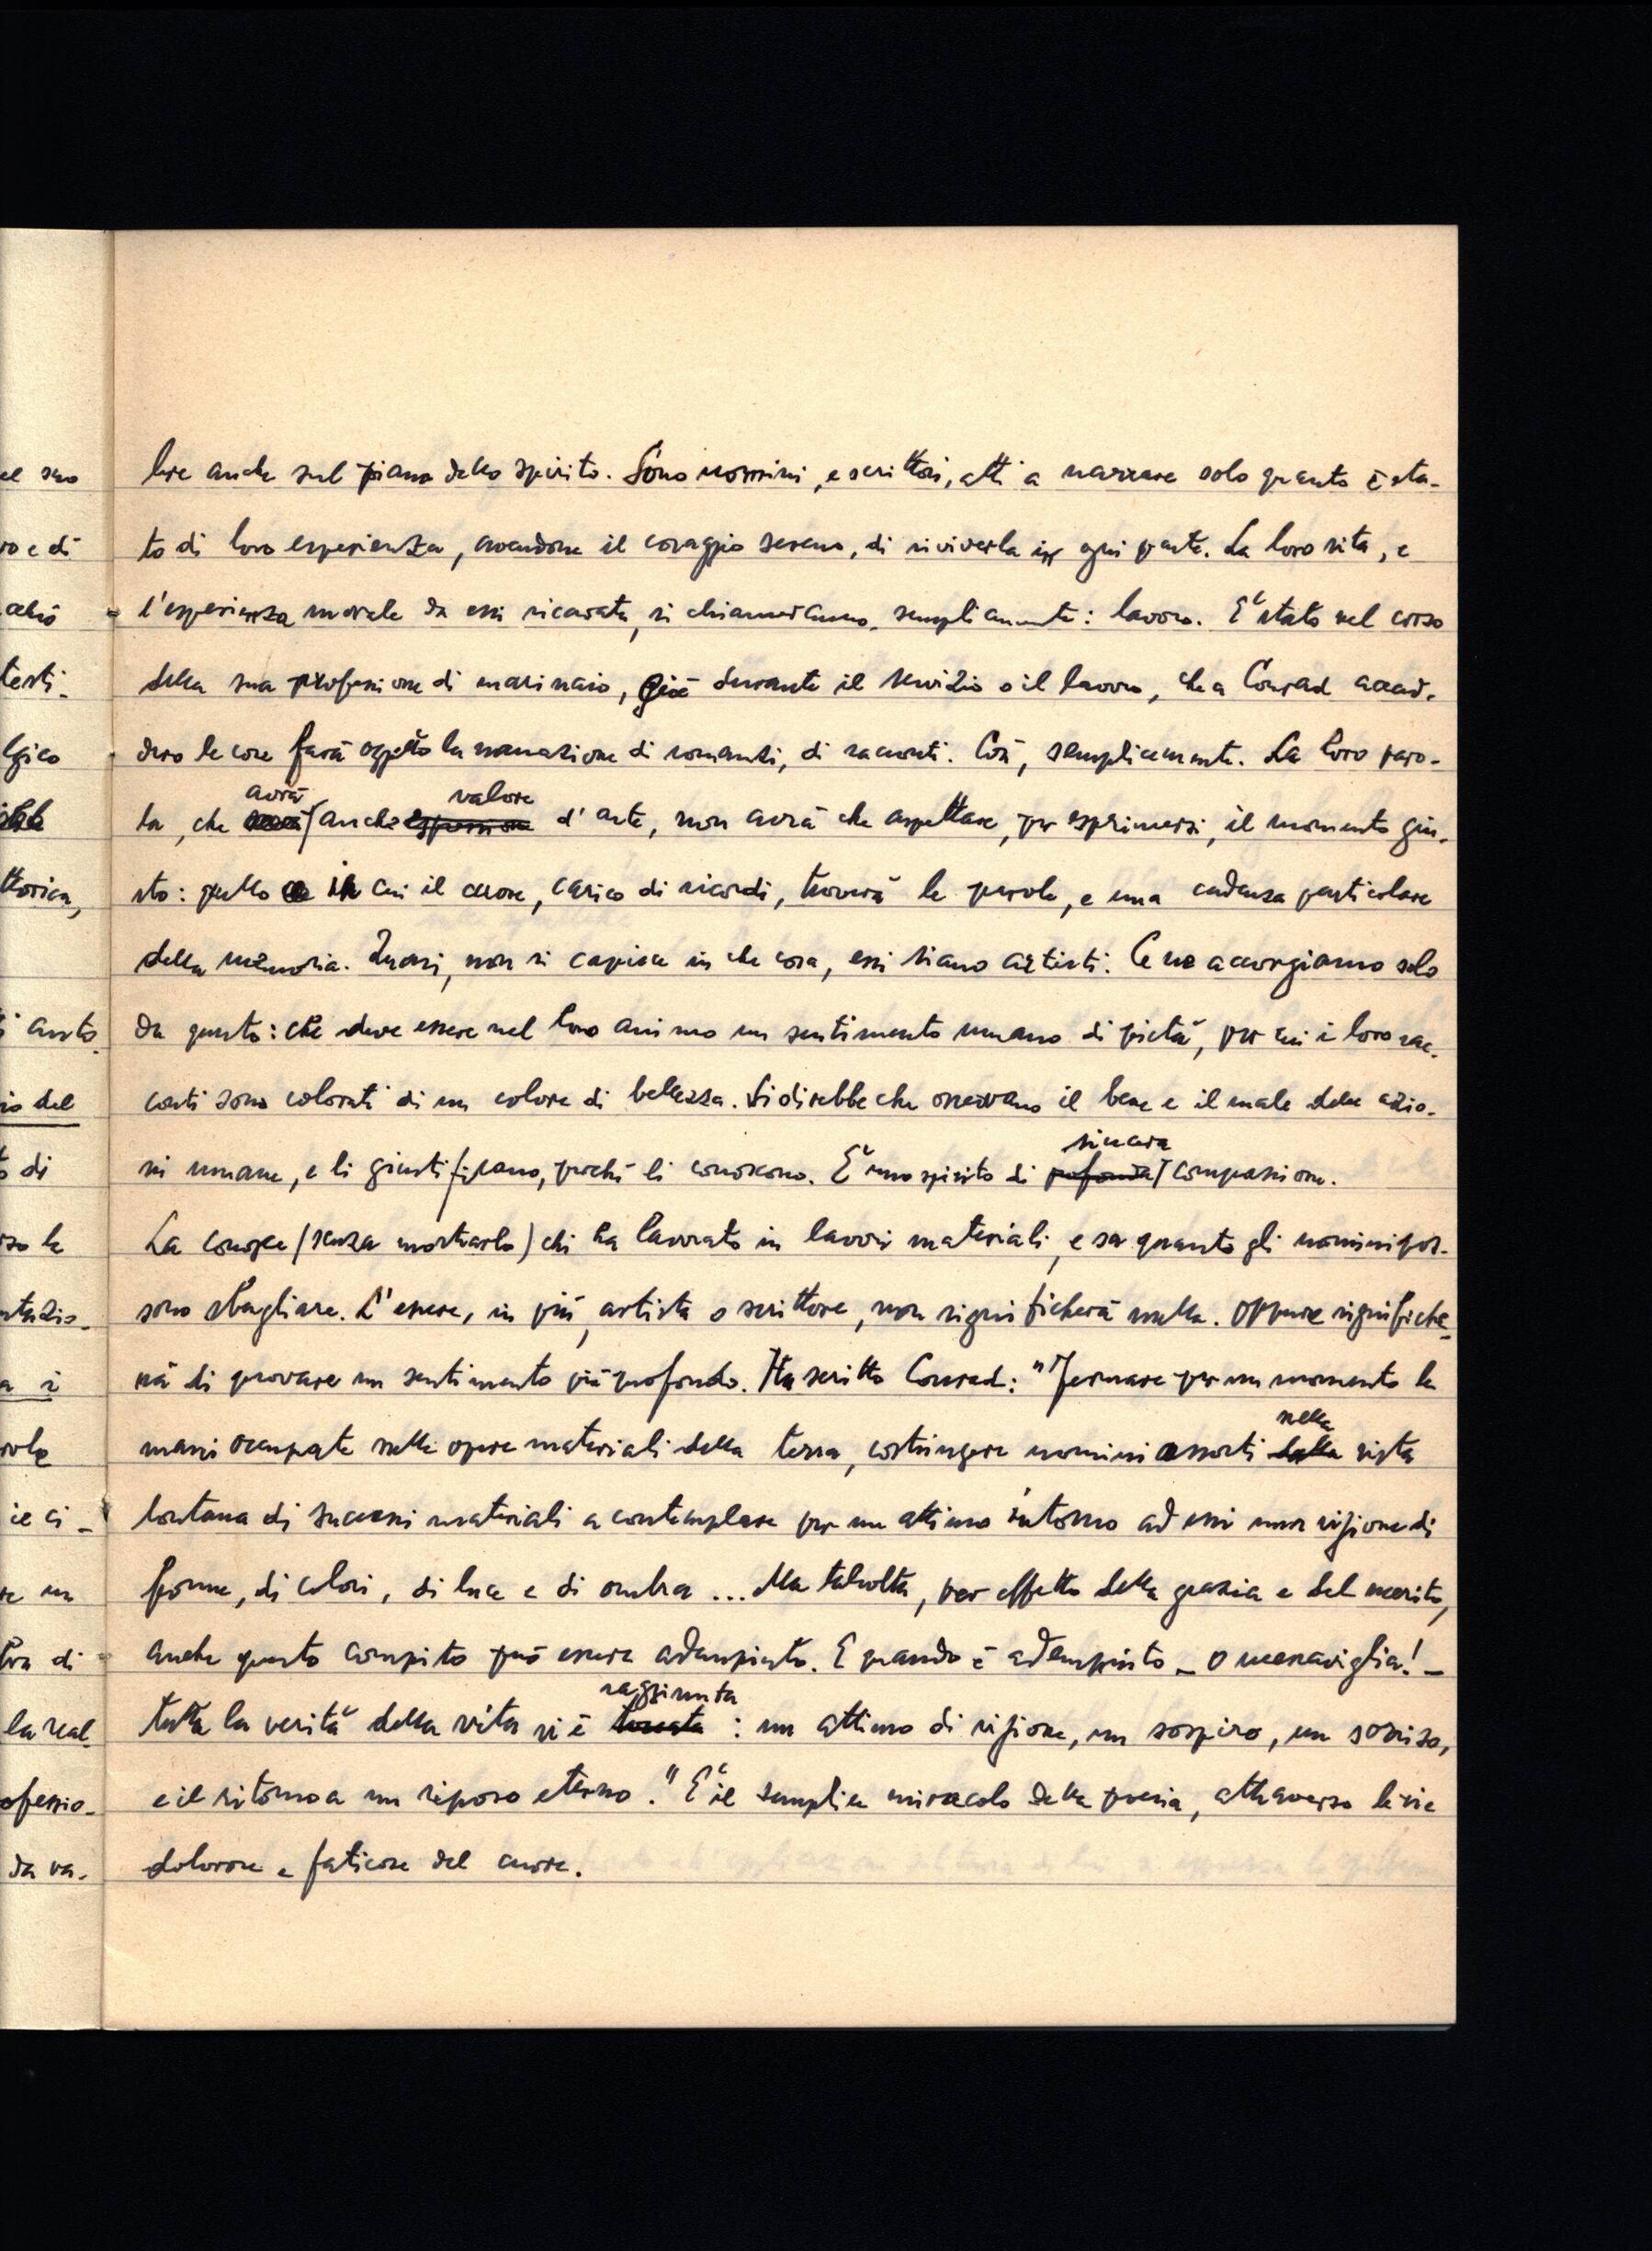 lere anche sul piano dello spirito. Sono uomini, e scrittori, atti a narrare solo quanto è sta-
to di loro esperienza, avendone il coraggio sereno, di riviverla in ogni parte. La loro vita, e
l'esperienza morale da essi ricavata, si chiameranno, semplicemente: lavoro. E' stato nel corso
della sua professione di marinaio, già durante il servizio o il lavoro, che a Conrad accad-
dero le cose farà oggetto la narrazione di romanzi, di racconti. Così, semplicemente. La loro paro-
avrà valore
la, che anche espressione d'arte, non avrà che aspettare, per esprimersi, il momento giu-
sto: quello in cui il cuore, carico di ricordi, troverà le parole, e una cadenza particolare
della memoria. Quasi, non si capisce in che cosa, essi siano artisti. Ce ne accorgiamo solo
da questo: che deve essere nel loro animo un sentimento umano di pietà, per cui i loro rac-
conti sono colorati di un colore di bellezza. Si direbbe che osservano il bene e il male delle azio-
sincera
ni umane, e li giustificano, perché li conoscono. E' uno spirito di profonda compassione.
La conosce (senza mostrarlo) chi ha lavorato in lavori materiali, e sa quanto gli uomini pos-
sono sbagliare. L'essere, in più, artista o scrittore, non significherà nulla. Oppure significhe-
rà di provare un sentimento più profondo. Ha scritto Conrad: "Fermare per un momento le
nella
mani occupate nelle opere materiali della terra, costringere uomini assorti dalla vista
lontana di successi materiali a contemplare per un attimo intorno ad essi una visione di
forme, di colori, di luce e di ombra ... Ma talvolta, per effetto della grazia e del merito,
anche questo compito può essere adempiuto. E quando è adempiuto - o meraviglia! -
raggiunta
tutta la verità della vita vi è toccata : un attimo di visione, un sospiro, un sorriso,
e il ritorno a un riposo eterno." E' il semplice miracolo della poesia, attraverso le vie
dolorose e faticose del cuore.